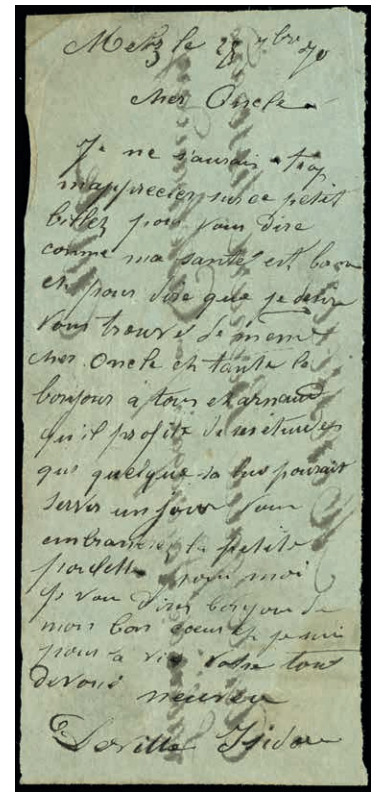 Metz le 28 7bre 70
cher Oncle
Je ne saurais trop
m'apprecier sur ce petit
billet pour vous dire
comme ma santé est bonne
et pour dire que je desire
vous trouvé de meme
cher Oncle et tante le
bonjour à tous et arnaud
qu'il profite de
que quelque sa lui pourait
server un jour vous
embrasserez la petite
pour moi
Je vous direz bonjour de
mon bon coeur et je suis
pour la vie votre tout
devoué neuveu
Deville Isidore